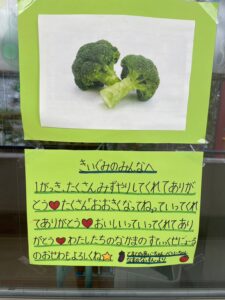 きいぐみのみんなへ
1がっき、たくさんみずやりしてくれてありが
とう❤たくさん"おおきくなってね。"っていってくれ
てありがとう❤おいしいっていってくれてあり
がとう❤わたしたちのなかまのすてぃっくせにょーる
のおせわもよろしくね⭐